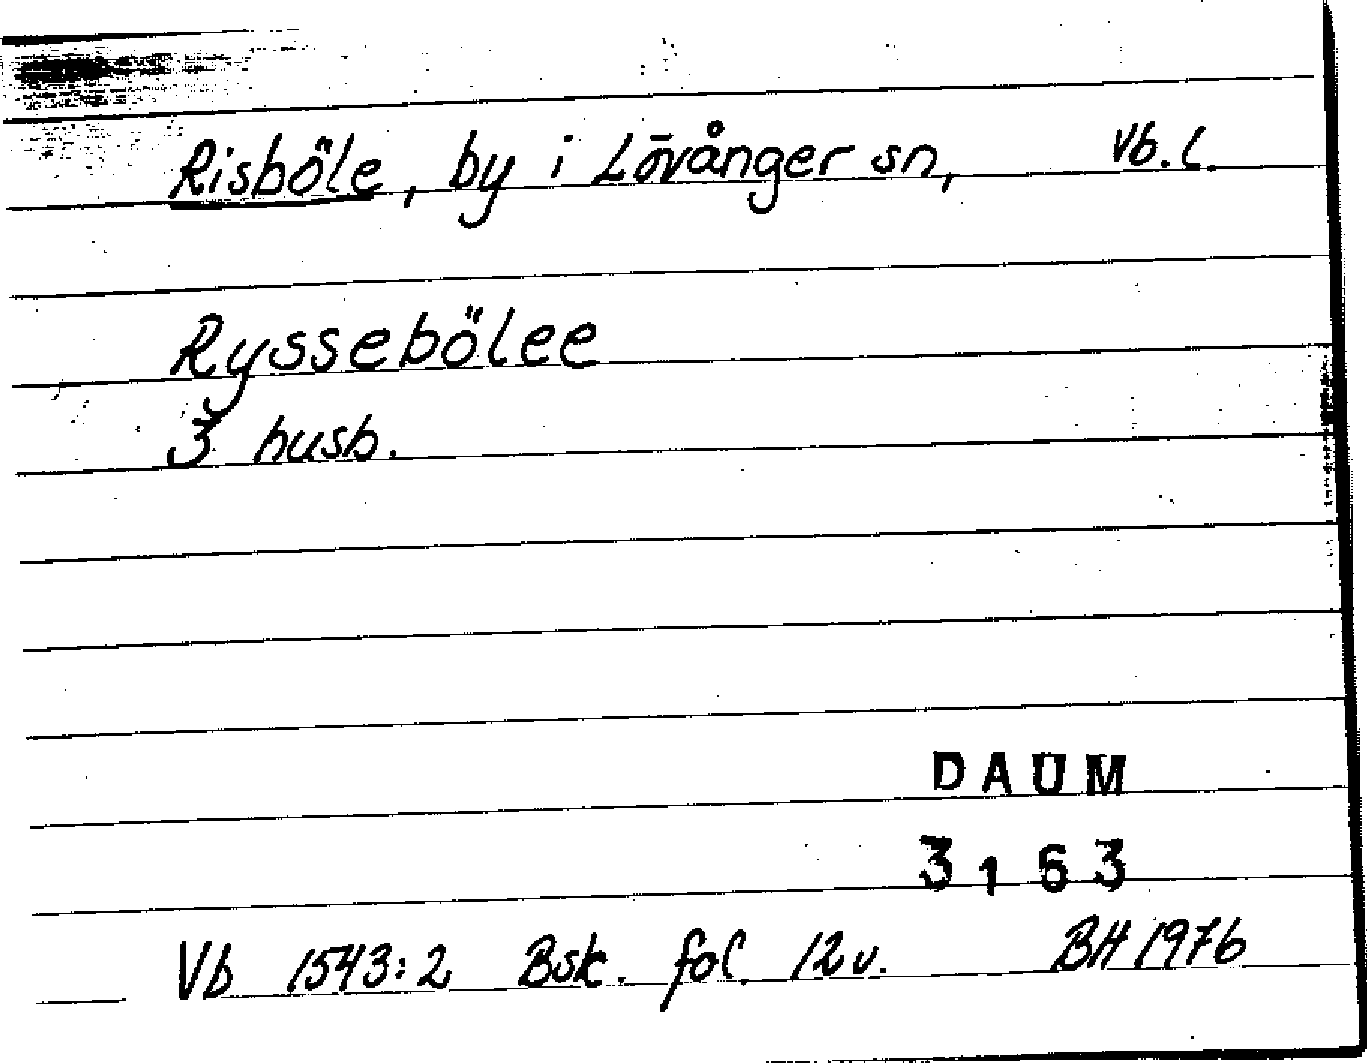 Risböle, by i Lövånger sn, Vb. l.
Ryssebölee
3 husb.
DAUM
3163
Vb 1543:2 Bsk. fol. 12v. BH 1976